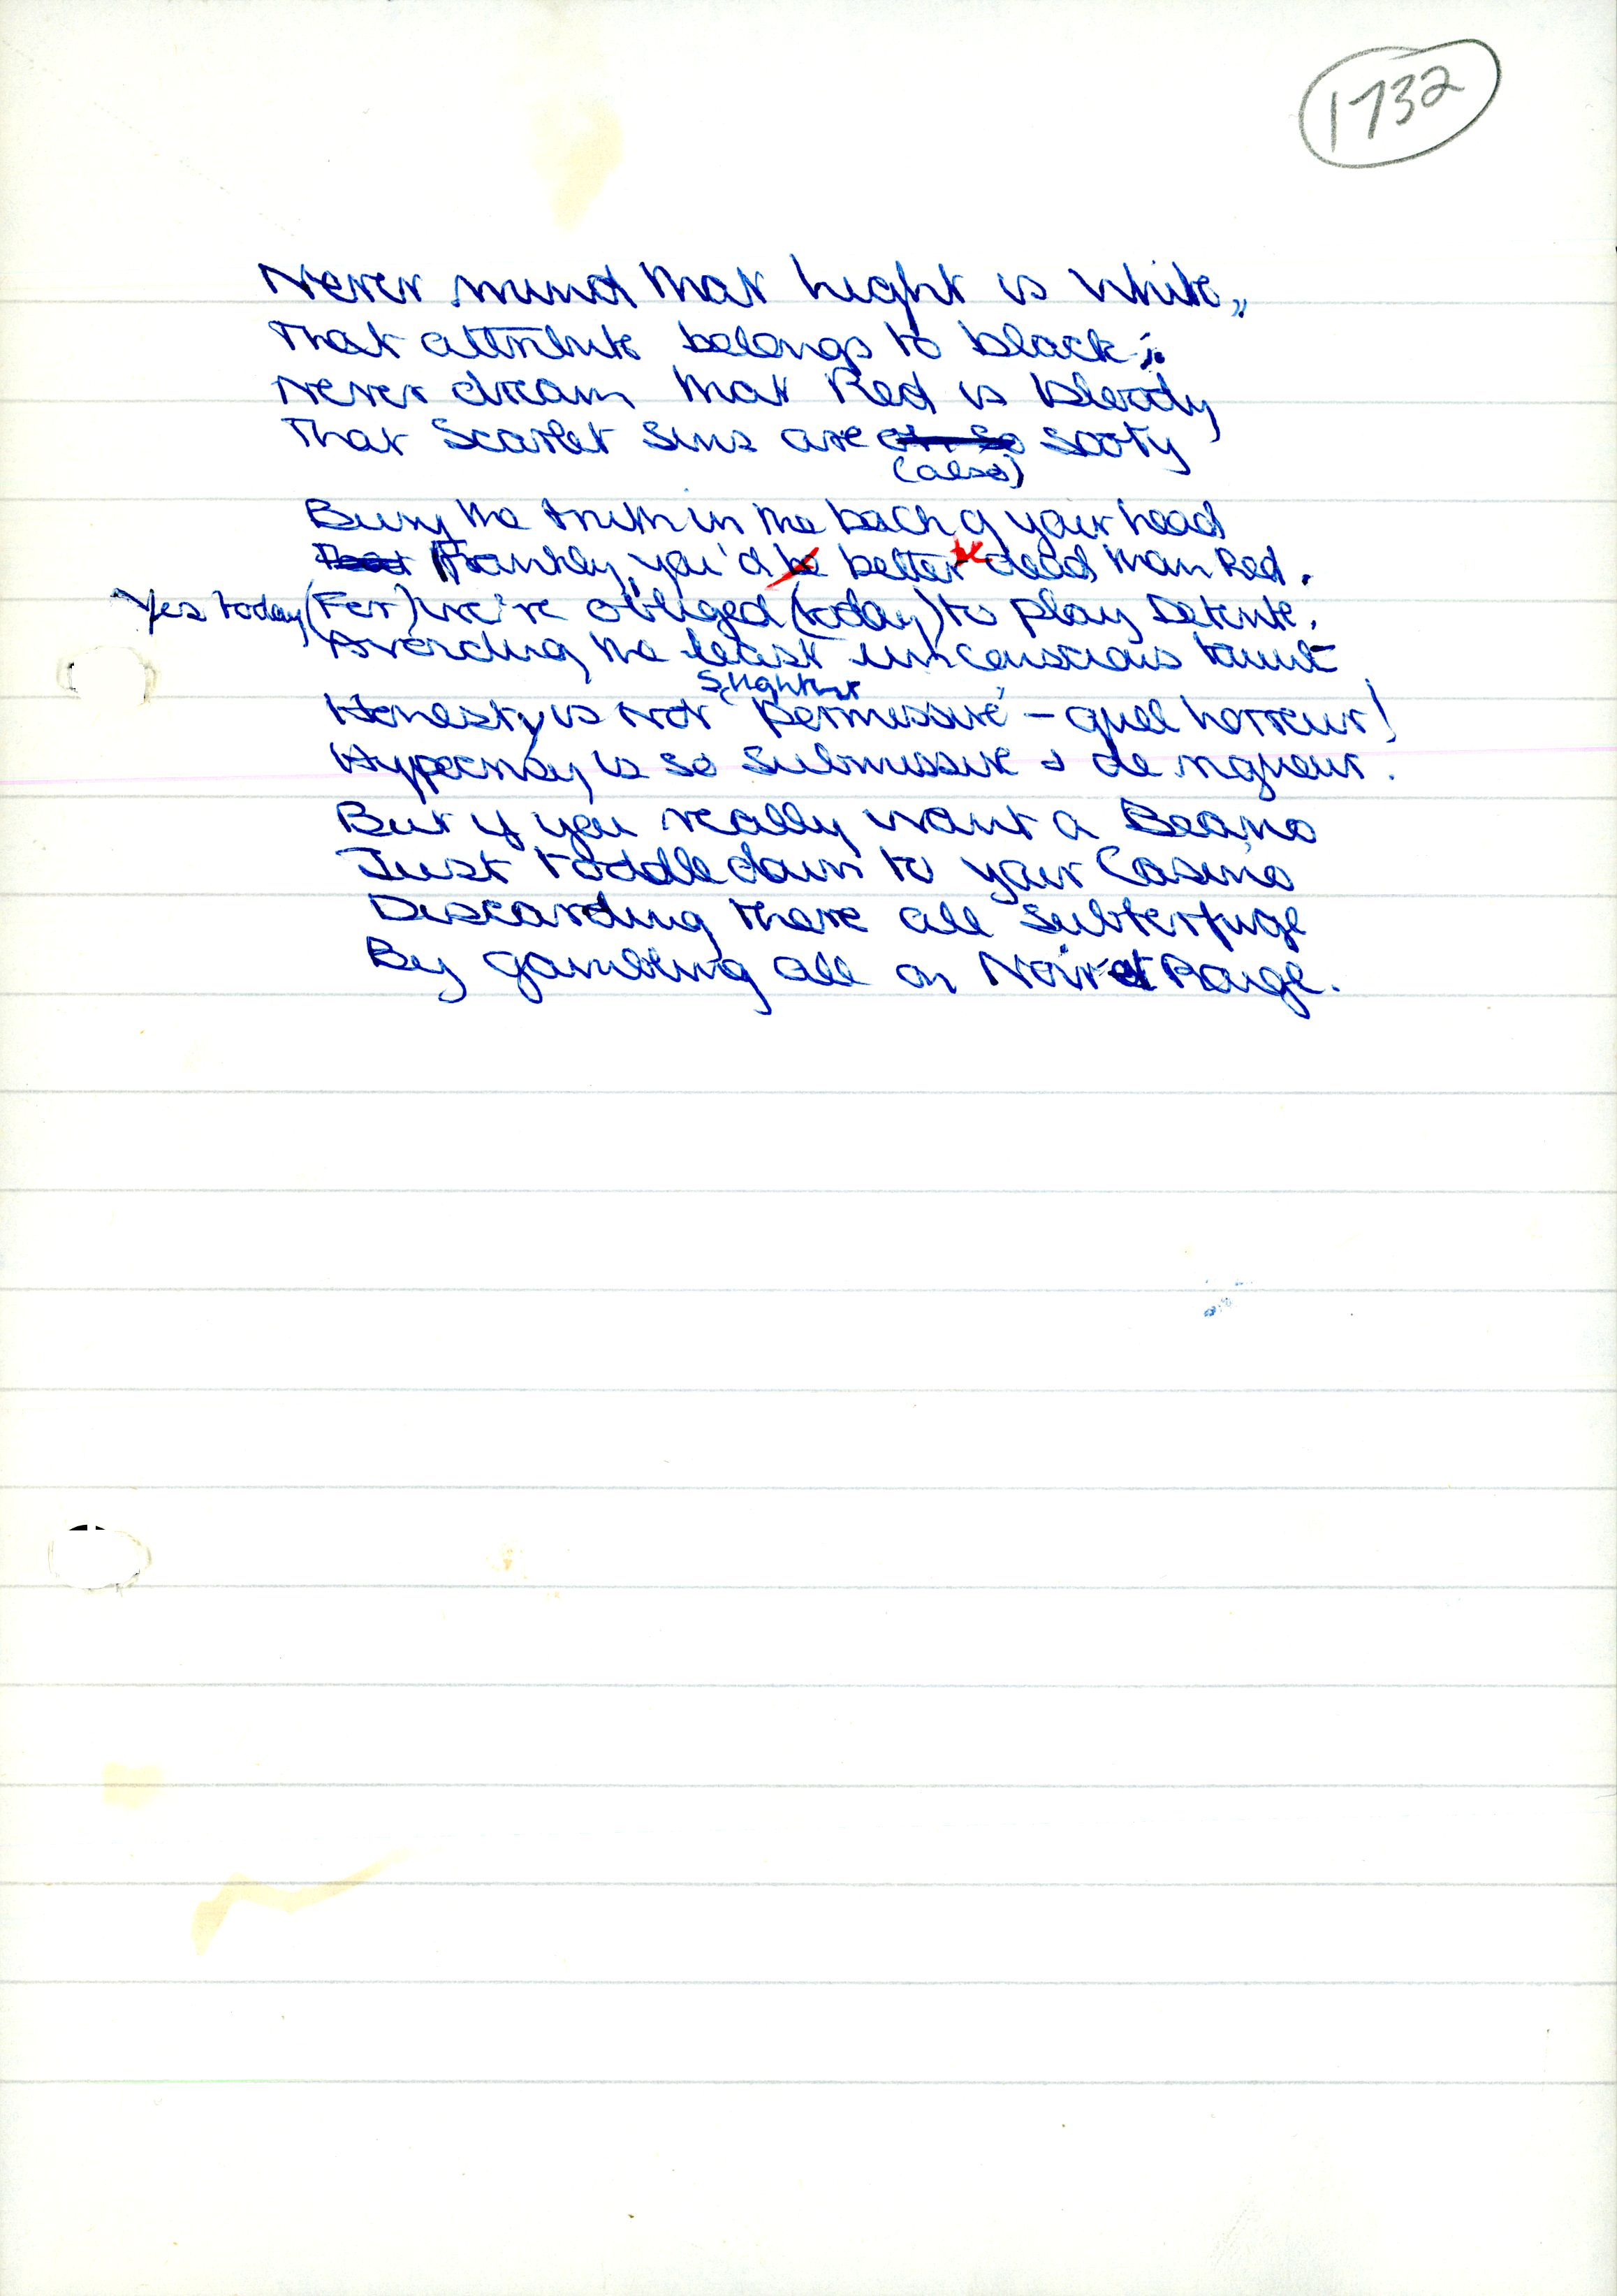 1732
Never mind that light is White,
That attribute belongs to black;
Never dream that Red is bloody
That Scarlet Sins are oh so sooty
(also)
Bury the truth in the back of your head
Frankly, you'd be better dead than Red.
Yes today, (For) we're obliged (today) to play Detente,
Avoiding the least unconscious taunt
Slightest
Honesty is not 'permissive' - quel horreur!
Hypocrisy is so submissive & de rigueur.
But if you really want a Beano
Just toddle down to your Casino
Discarding there all subterfuge
By gambling all on Noir et Rouge.